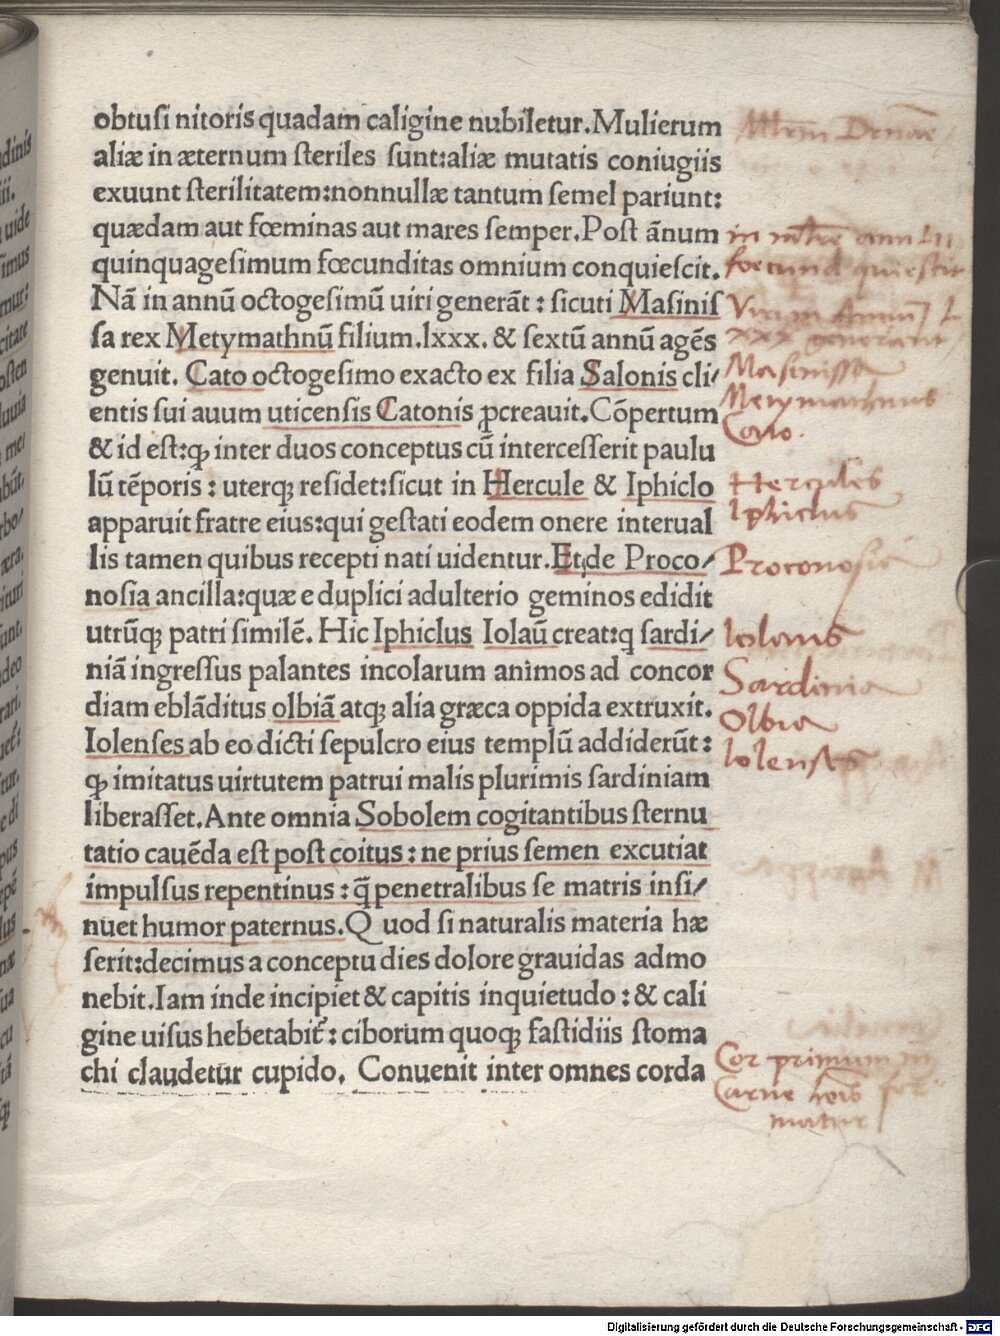 obtusi nitoris quadam caligine nubiletur. Mulierum
aliæ in æternum steriles sunt: aliæ mutatis coniugiis
exuunt sterilitatem: nonnullæ tantum semel pariunt:
quædam aut fœminas aut mares semper. Post ānum
quinquagesimum fœcunditas omnium conquiescit.
Nā in annū octogesimū uiri generāt : sicuti Masinis
sa rex Metymathnū filium. lxxx. & sextū annū agēs
genuit. Cato octogesimo exacto ex filia Salonis cli/
entis sui auum uticensis Catonis ꝓcreauit. Cōpertum
& id est: ꝙ inter duos conceptus cū intercesserit paulu
lū tēporis : uterqꝫ residet: sicut in Hercule & Iphiclo
apparuit fratre eius: qui gestati eodem onere interual
lis tamen quibus recepti nati uidentur. Et de Proco/
nosia ancilla: quæ e duplici adulterio geminos edidit
utrūqꝫ patri similē. Hic Iphiclus Iolaū creat: q sardi/
niā ingressus palantes incolarum animos ad concor
diam eblāditus olbiā atqꝫ alia græca oppida extruxit.
Iolenses ab eo dicti sepulcro eius templū addiderūt :
ꝙ imitatus uirtutem patrui malis plurimis sardiniam
liberasset. Ante omnia Sobolem cogitantibus sternu
tatio cauēda est post coitus : ne prius semen excutiat
impulsus repentinus : q̄ penetralibus se matris insi/
nuet humor paternus. Q uod si naturalis materia hæ
serit: decimus a conceptu dies dolore grauidas admo
nebit. Iam inde incipiet & capitis inquietudo : & cali
gine uisus hebetabit̄ : ciborum quoqꝫ fastidiis stoma
chi claudetur cupido. Conuenit inter omnes corda
foecund quiescit
generant
Masinissa
Metymathnus
Cato.
Hercules
Iphiclus
Proconosia
Iolaus
Sardinia
Olbia
Iolenses
Cor primum in
Carne hoīs for
matur
Digitalisierung gefördert durch die Deutsche Forschungsgemeinschaft - DFG